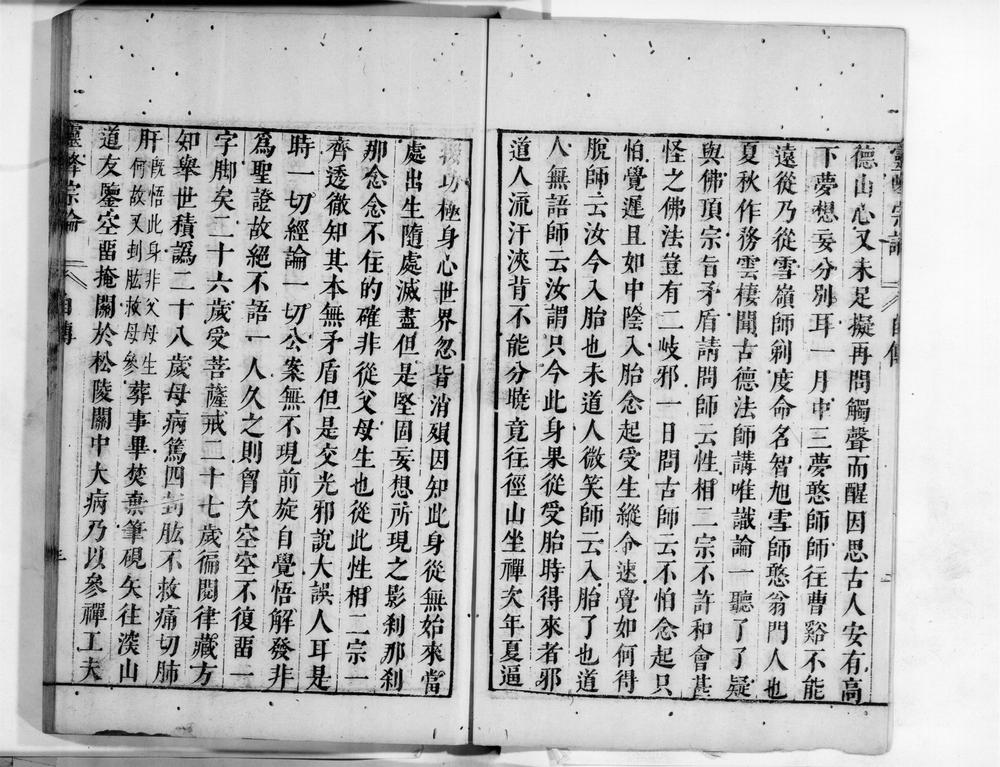 靈峰宗論
自傳
二
德山心又未足擬再問觸聲而醒因思古人安有高
下夢想妄分別耳一月中三夢憨師師往曹谿不能
遠從乃從雪嶺師剃度命名智旭雪師憨翁門人也
夏秋作務雲棲聞古德法師講唯識論一聽了了疑
與佛頂宗旨矛盾請問師云性相二宗不許和會甚
怪之佛法豈有二岐邪一日問古師云不怕念起只
怕覺遲且如中陰入胎念起受生縱令速覺如何得
脫師云汝今入胎也未道人微笑師云入胎了也道
人無語師云汝謂只今此身果從受胎時得來者邪
道人流汗浹背不能分曉竟往徑山坐禪次年夏逼
拶功極身心世界忽皆消殞因知此身從無始來當
處出生隨處滅盡但是堅固妄想所現之影刹那刹
那念念不住的確非從父母生也從此性相二宗一
齊透徹知其本無矛盾但是交光邪說大誤人耳是
時一切經論一切公案無不現前旋自覺悟解發非
爲聖證故絕不語一人久之則胷次空空不復畱一
字脚矣二十六歲受菩薩戒二十七歲徧閱律藏方
知舉世積譌二十八歲母病篤四刲肱不救痛切肺
肝旣悟此身非父母生何故又刲肱救母參葬事畢焚棄筆硯矢往深山
道友鑒空畱掩關於松陵關中大病乃以參禪工夫
靈峰宗論
自傳
三